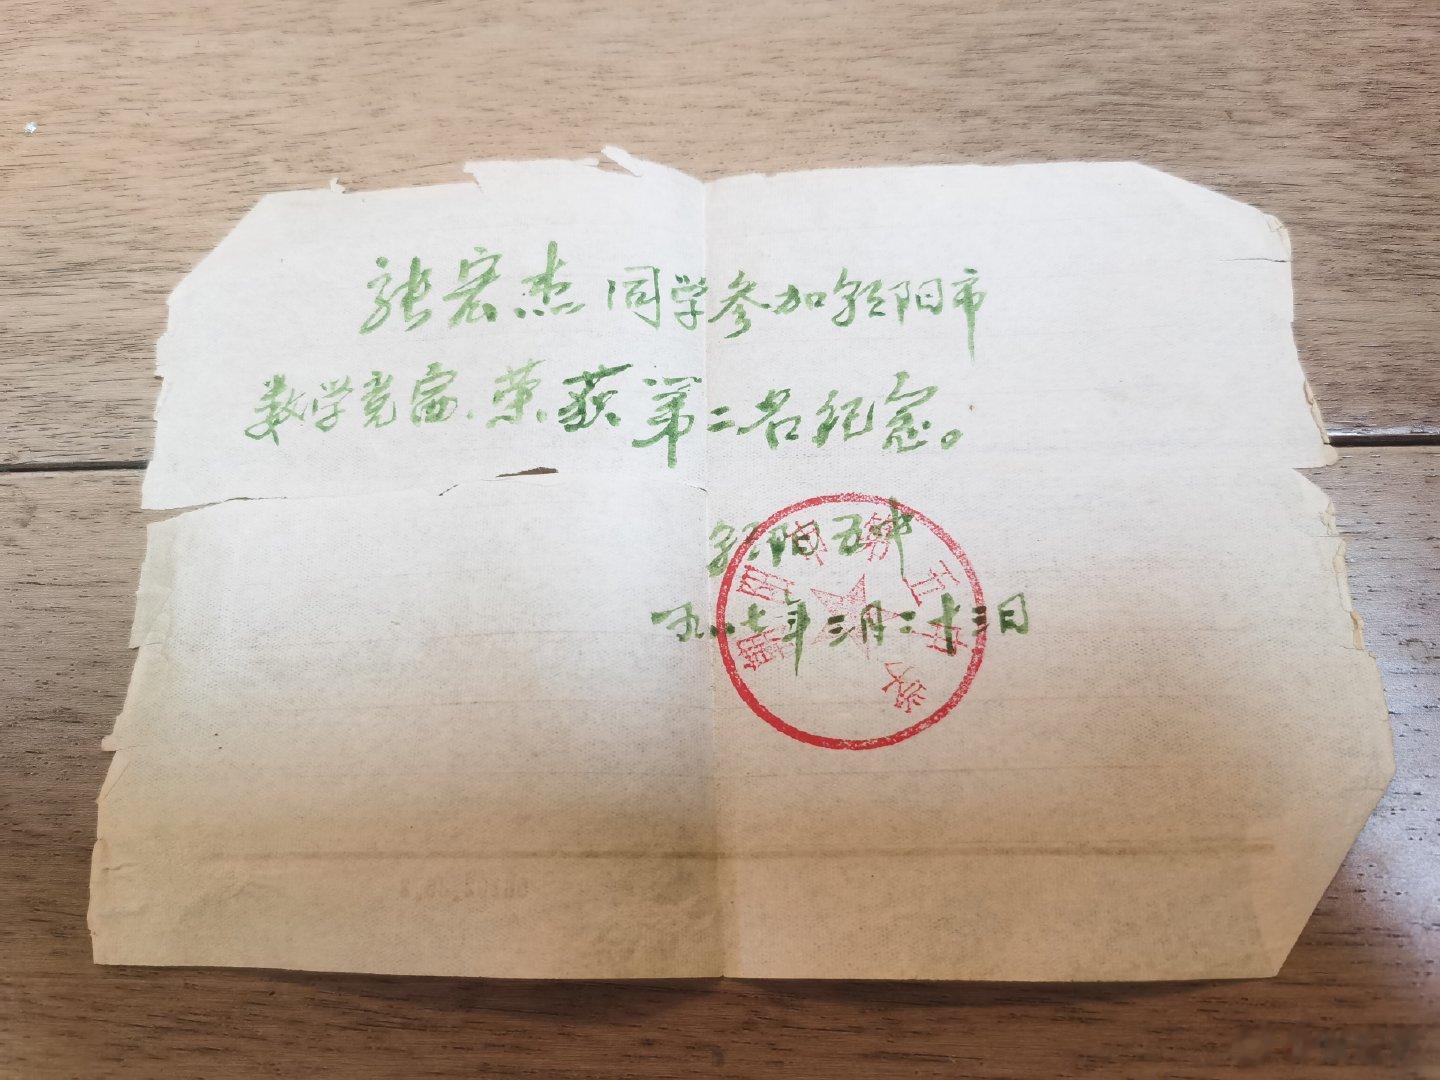 张宏杰同学参加朝阳市
数学竞赛.荣获第二名纪念。
朝阳五中
一九八七年三月二十三日
朝阳市第五中学